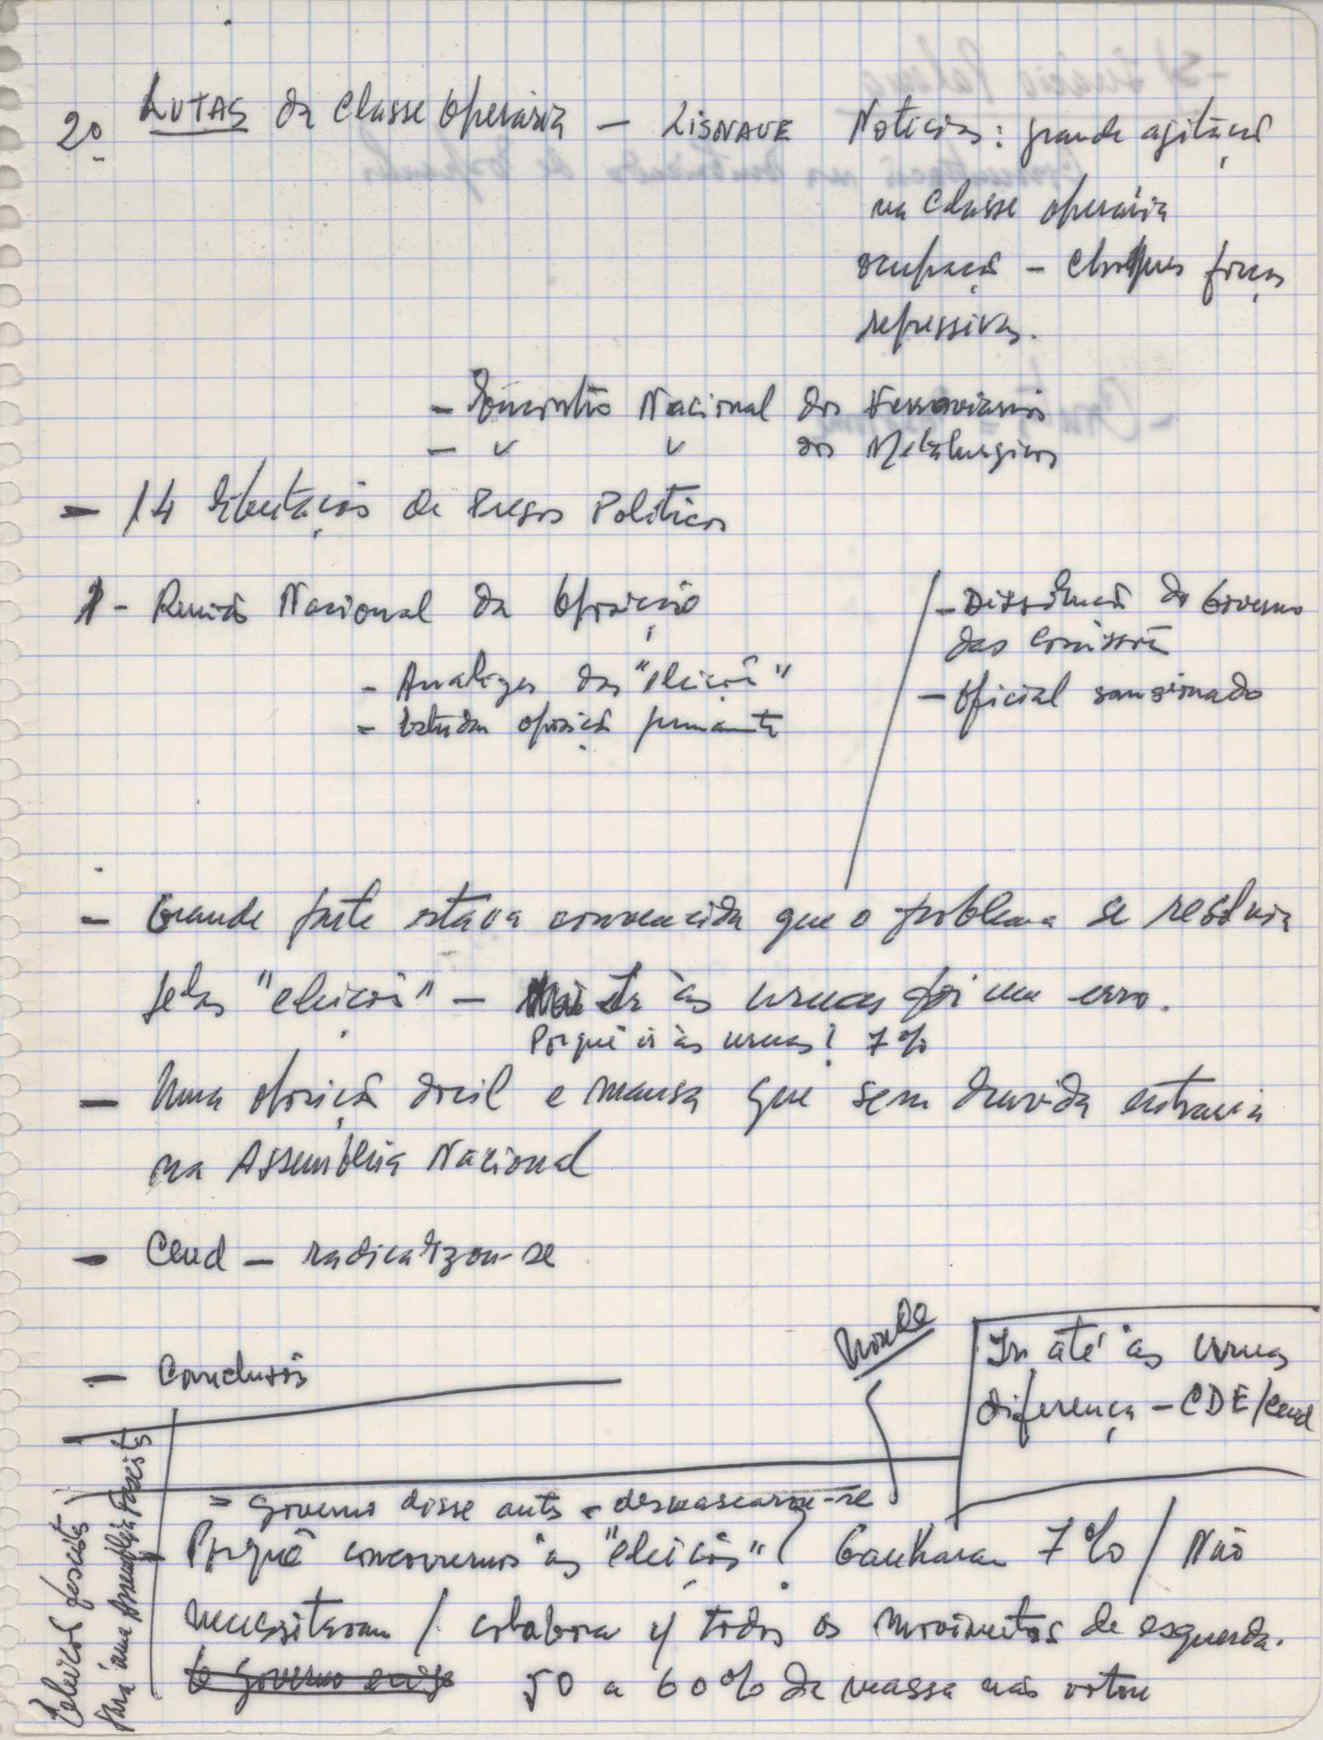 2º LUTAS da Classe Operária - LISNAVE Noticias: grande agitação
na Classe operária
ocupação - choques forças
repressivas.
- Encontro Nacional dos Ferroviarios
- " " dos Metalurgicos
- 14 libertação de Presos Politicos
1 - Reunião Nacional da Oposição
- Analizar das "eleições"
- Estudar oposição permanente
- Dissolução do Governo
das Comissões
- Oficial sansionado
- Grande parte estava convencida que o problema se resolvia
pelas "eleições" - Ir às urnas foi um erro.
Porquê ir às urnas? 7%
- Uma oposição docil e mansa que sem duvida entraria
na Assembleia Nacional
- Ceud - radicalizou-se
- Conclusões
Ir até às urnas
diferença - CDE/Ceud
= governo disse antes - desmascarou-se
Porquê concorremos às "eleições"? Ganharam 7% / Não
necessitavam / colabora c/ todos os movimentos de esquerda.
o governo exige 50 a 60% da massa não votou
Eleições fascistas
para uma Assembleia Fascista